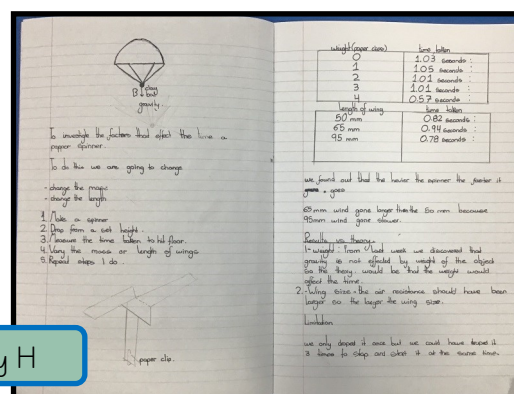 B clay
ball
gravity
To investigate the factors that effect the time a
paper spinner.
To do this we are going to change
- change the mass
- change the length
1. Make a spinner
2. Drop from a set height.
3. Measure the time taken to hit floor.
4. Vary the mass or length of wings
5. Repeat steps I do.
paper clip.
y H
weight (paper clips) time taken
0 1.03 seconds :
1 1.05 seconds :
2 1.01 seconds :
3 1.01 seconds :
4 0.57 seconds :
length of wing time taken
50 mm 0.82 seconds :
65 mm 0.94 seconds :
95 mm 0.78 seconds :
we found out that the heavier the spinner the faster it
goes
65mm wind gone longer than the 50 mm because
95mm wind gone slower.
Results vs theory.
1- weight: From last week we discovered that
gravity is not effected by weight of the object
so the theory would be that the weight would
affect the time.
2. - Wing size - the air resistance should have been
larger so the larger the wing size.
Limitation
we only droped it once but we could have droped it
3 times to stop and start it at the same time.